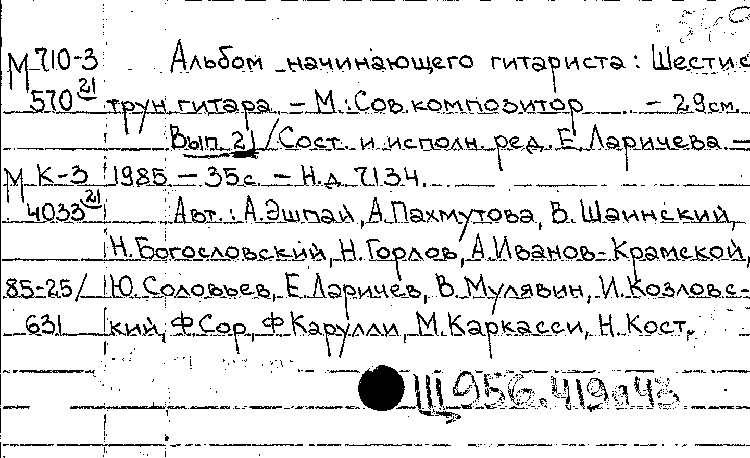 549
М 710-3 Альбом начинающего гитариста: Шестис
570 21 трун. гитара – М.: Сов. композитор – 29см.
Вып. 21 / Сост. и исполн. ред. Е. Ларичева. –
М К-3 1985 – 35с. – Н.д. 7134.
4033 21 Авт.: А. Эшпай, А. Пахмутова, В. Шаинский,
Н. Богословский, Н. Горлов, А. Иванов-Крамской,
85-25/ Ю. Соловьев, Е. Ларичев, В. Мулявин, И. Козловс-
631 кий, Ф. Сор, Ф. Карулли, М. Каркасси, Н. Кост.
Ш956.419